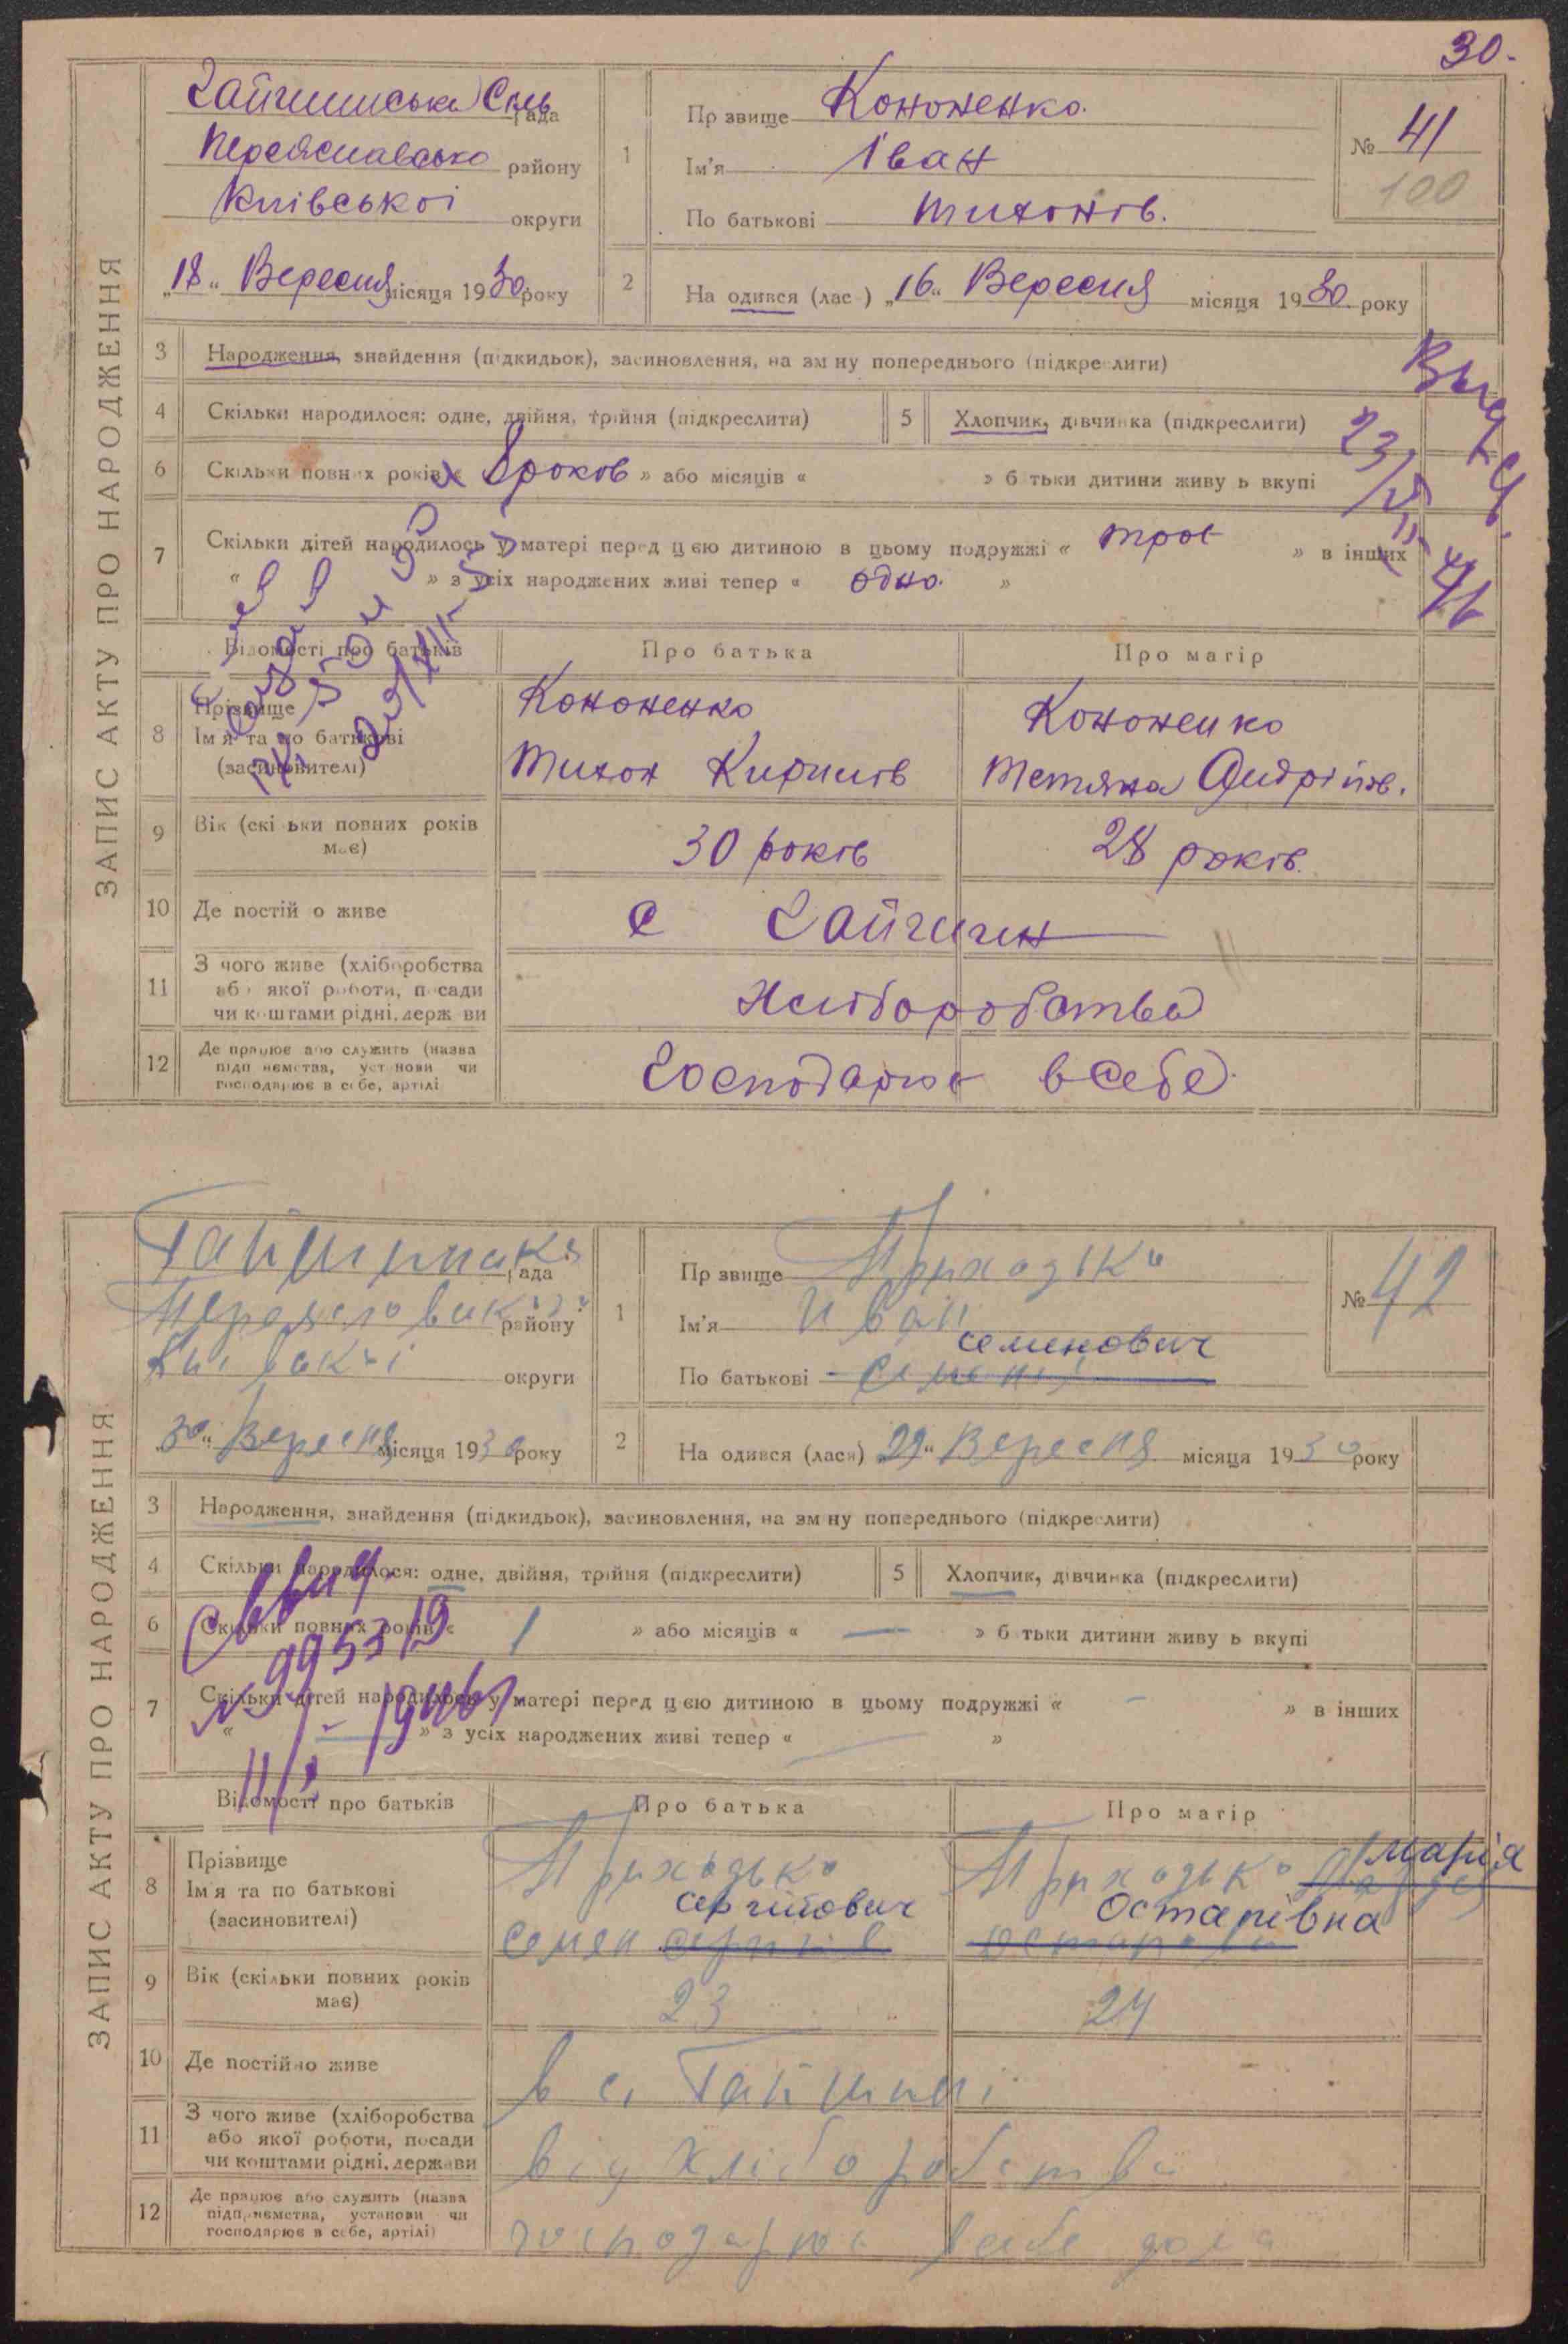 30.
ЗАПИС АКТУ ПРО НАРОДЖЕННЯ
Гайшинська Сіль рада
Переяславсько району
Київської округи
„18“ Вересня місяця 1930 року
1
Пр звище Кононенко.
Ім'я Іван
По батькові Тихонів.
№ 41
100
2
На одився (лас ) „16“ Вересня місяця 1930 року
3 Народження, знайдення (підкидьок), засиновлення, на зм ну попереднього (підкреслити)
4 Скільки народилося: одне, двійня, трійня (підкреслити)
5 Хлопчик, дівчинка (підкреслити)
6 Скільки повних років « 8 роков » або місяців « » б тьки дитини живу ь вкупі
23/VII-46
7 Скільки дітей народилось у матері перед цією дитиною в цьому подружжі « троє » в інших
« » з усіх народжених живі тепер « одно. »
Відомості про батьків
Про батька
Про матір
8 Прізвище
Ім'я та по батькові
(засиновителі)
Кононенко
Тихон Кирилів
Кононенко
Тетяна Андріїв.
9 Вік (скі ьки повних років
має)
30 років
28 років.
10 Де постій о живе
с Гайшин
11 З чого живе (хліборобства
або якої роботи, посади
чи коштами рідні, держ ви
Хліборобства
12 Де працює або служить (назва
підп иємства, установи чи
господарює в себе, артілі
Господарює в себе.
ЗАПИС АКТУ ПРО НАРОДЖЕННЯ
рада
району
округи
„30“ Вересня місяця 1930 року
1
Пр звище Приходько
Ім'я Иван
семенович
По батькові
№ 42
2
На одився (лася) „29“ Вересня місяця 1930 року
3 Народження, знайдення (підкидьок), засиновлення, на зм ну попереднього (підкреслити)
4 Скільки народилося: одне, двійня, трійня (підкреслити)
5 Хлопчик, дівчинка (підкреслити)
6 Скільки повних років « 1 » або місяців « — » б тьки дитини живу ь вкупі
7 Скільки дітей народилось у матері перед цією дитиною в цьому подружжі « - » в інших
« — » з усіх народжених живі тепер « — »
Відомості про батьків
Про батька
Про матір
8 Прізвище
Ім'я та по батькові
(засиновителі)
Приходько
сергійович
Семен
Приходько
Марія
Остапівна
9 Вік (скільки повних років
має)
23
24
10 Де постійно живе
в с. Гайшині
11 З чого живе (хліборобства
або якої роботи, посади
чи коштами рідні, держави
від хліборобства
12 Де працює або служить (назва
підприємства, установи чи
господарює в себе, артілі)
господарює